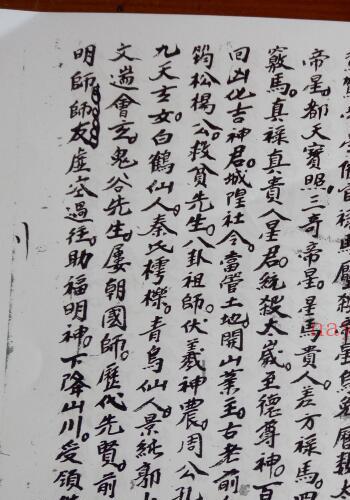 帝星。都天寶照。三奇帝星。星馬貴人。差方祿馬。
竅馬。真祿真貴人星君。統殺大歲。至德尊神。百
回凶化吉神君。城隍社令。當管土地。開山業主。古老前
筠松楊公。救貧先生。八卦祖師。伏羲神農。周公孔
九天玄女。白鶴仙人。秦氏樗櫟。青烏仙人。景純郭
文遄會玄。鬼谷先生。屢朝國師。歷代先賢。前
明師師友。虛空過往。助福明神。下降山川。受領